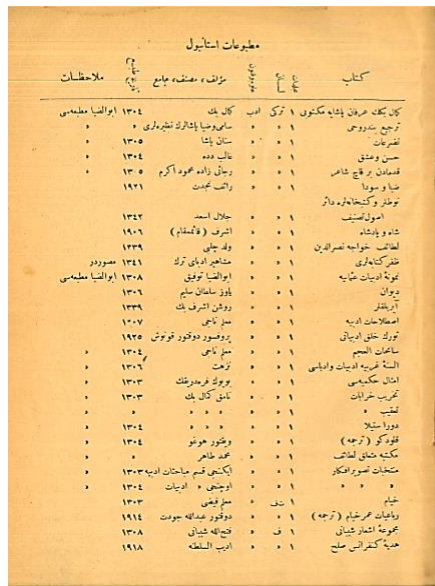 مطبوعات استانبول
كتاب عدد لسان مؤلف، مصنف، جامع تاريخ طبع ملاحظات
كمال بكك عرفان پاشايه مكتوبى ١ تركى ادب كمال بك ١٣٠٤ ابوالضيا مطبعه‌سى
ترجيع بند روحى ١ » » سامى وضيا پاشالرك نظيره‌لرى » »
تضرعات ١ » » سنان پاشا ١٣٠٥ »
حسن وعشق ١ » » غالب دده ١٣٠٤ »
قدمادن بر قاچ شاعر ١ » » رجائى زاده محمود اكرم ١٣٠٥ »
ضيا و سودا ١ » » رائف نجدت ١٩٢١
نوطلر و كتبخانه‌لره دائر
اصول تصنيف ١ » » جلال اسعد ١٣٤٢
شاه و پادشاه ١ » » اشرف (قائممقام) ١٩٠٦
لطائف خواجه نصرالدين ١ » » ولد چلبى ١٣٣٩
ظفر كتابه‌لرى ١ » » مشاهير ادباى ترك ١٣٤١ مصوردر
نمونهٔ ادبيات عثمانيه ١ » » ابوالضيا توفيق ١٣٠٨ ابوالضيا مطبعه‌سى
ديوان ١ » » ياوز سلطان سليم ١٣٠٦
آيريلقلر ١ » » روشن اشرف بك ١٣٣٩
اصطلاحات ادبيه ١ » » معلم ناجى ١٠٠٧
تورك خلق ادبياتى ١ » » پروفسور دوقتور قونوش ١٩٢٥
سانحات العجم ١ » » معلم ناجى ١٣٠٤ »
السنهٔ غربيه ادبيات وادباسى ١ » » نزهت ١٣٠٦ »
امثال حكميه‌سى ١ » » بويوك فره‌دريقك ١٣٠٣ »
تخريب خرابات ١ » » نامق كمال بك ١٣٠٣ »
تعقيب » ١ » » » » » » »
دورا ستيلا ١ » » » » » ١٣٠٤ »
قلودكو (ترجمه) ١ » » ويقتور هوغو ١٣٠٤ »
مكتبه متعلق لطائف ١ » » محمد طاهر » »
منتخبات تصوير افكار ١ » » ايكنجى قسم مباحثات ادبيه ١٣٠٣ »
» » » ١ » » اوچنجى » ادبيات ١٣٠٤ »
خيام ١ ت ف » معلم فيضى ١٣٠٣
رباعيات عمر خيام (ترجمه) ١ » » دوقتور عبدالله جودت ١٩١٤
مجموعهٔ اشعار شيبانى ١ ف » فتح‌الله شيبانى ١٣٠٨
هديهٔ كنفرانس صلح ١ » » اديب السلطنه ١٩١٨